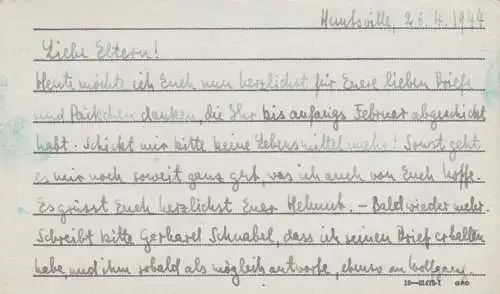 Huntsville, 26.4.1944
Liebe Eltern!
Heute möchte ich Euch nun herzlichst für Eure lieben Briefe
und Päckchen danken, die Ihr bis anfangs Februar abgeschickt
habt. Schickt mir bitte keine Lebensmittel mehr! Sonst geht
es mir noch soweit ganz gut, was ich auch von Euch hoffe.
Es grüsst Euch herzlichst Euer Helmut. – Bald wieder mehr.
Schreibt bitte Gerhard Schnabel, dass ich seinen Brief erhalten
habe, und ihm sobald als möglich antworte, ebenso an Wolfgang.
GPO